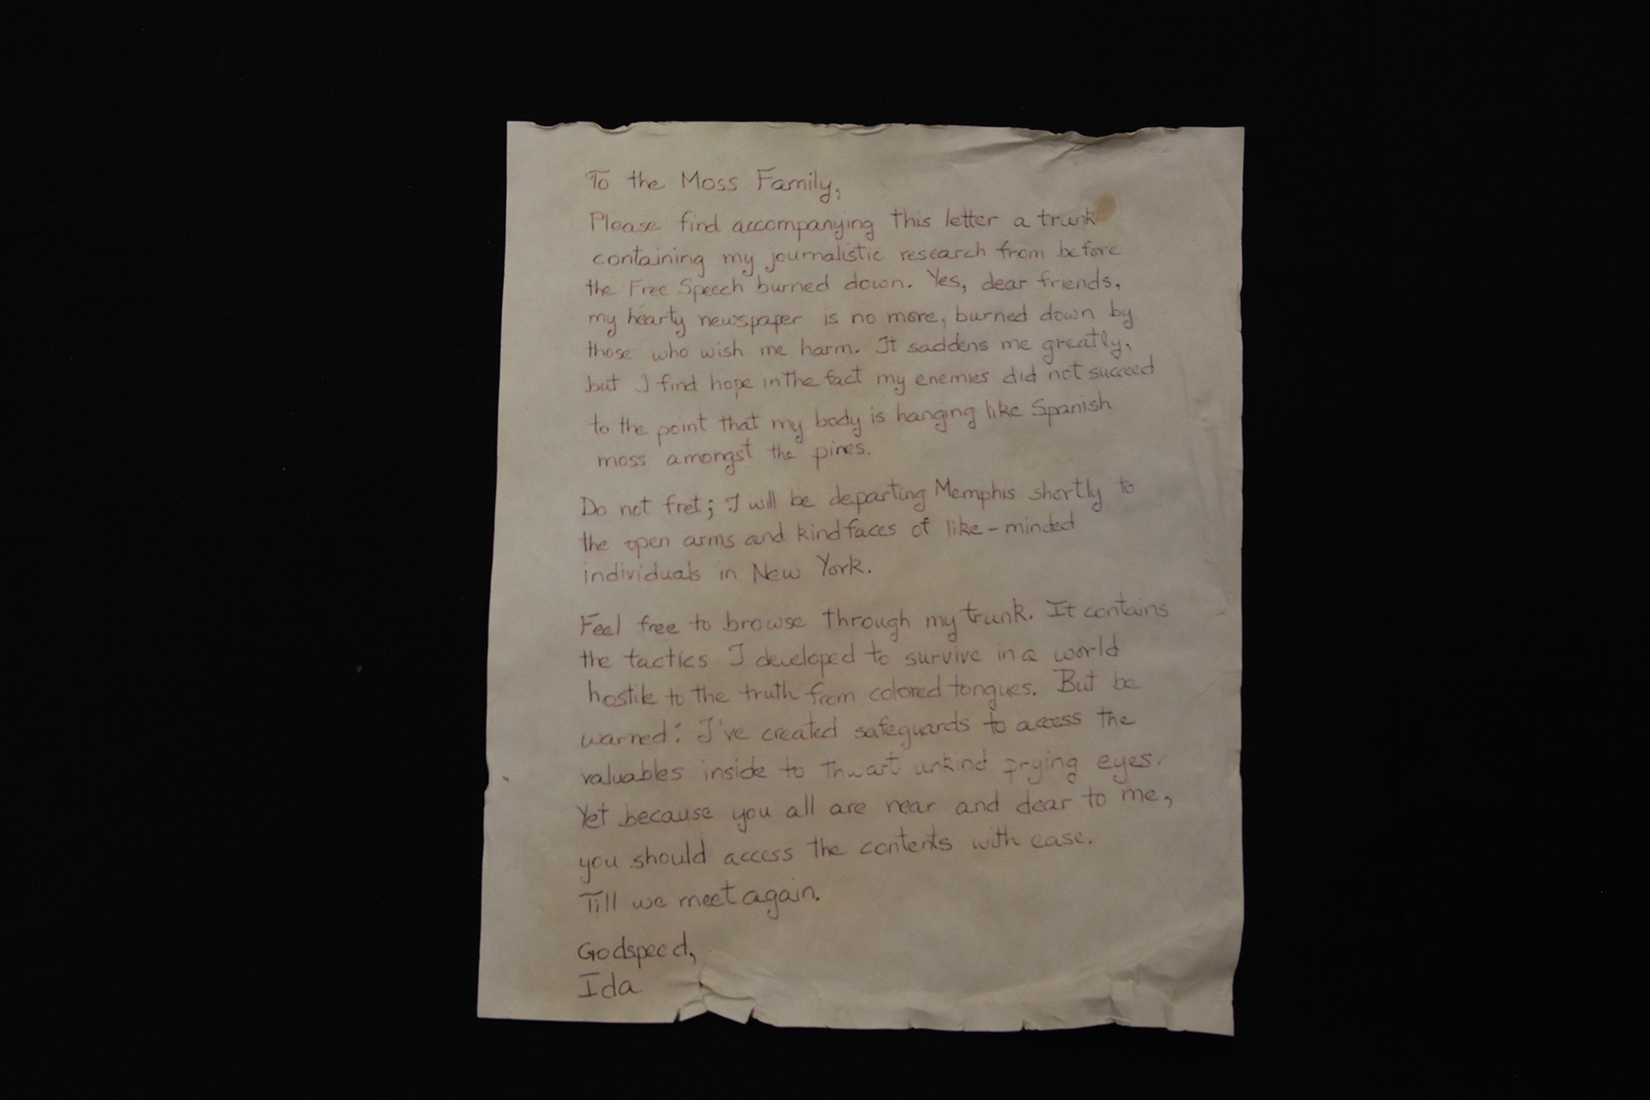 To the Moss Family,
Please find accompanying this letter a trunk
containing my journalistic research from before
the Free Speech burned down. Yes, dear friends,
my hearty newspaper is no more, burned down by
those who wish me harm. It saddens me greatly,
but I find hope in the fact my enemies did not succeed
to the point that my body is hanging like Spanish
moss amongst the pines.
Do not fret; I will be departing Memphis shortly to
the open arms and kind faces of like-minded
individuals in New York.
Feel free to browse through my trunk. It contains
the tactics I developed to survive in a world
hostile to the truth from colored tongues. But be
warned: I've created safeguards to access the
valuables inside to thwart unkind prying eyes.
Yet because you all are near and dear to me,
you should access the contents with ease.
Till we meet again.
Godspeed,
Ida